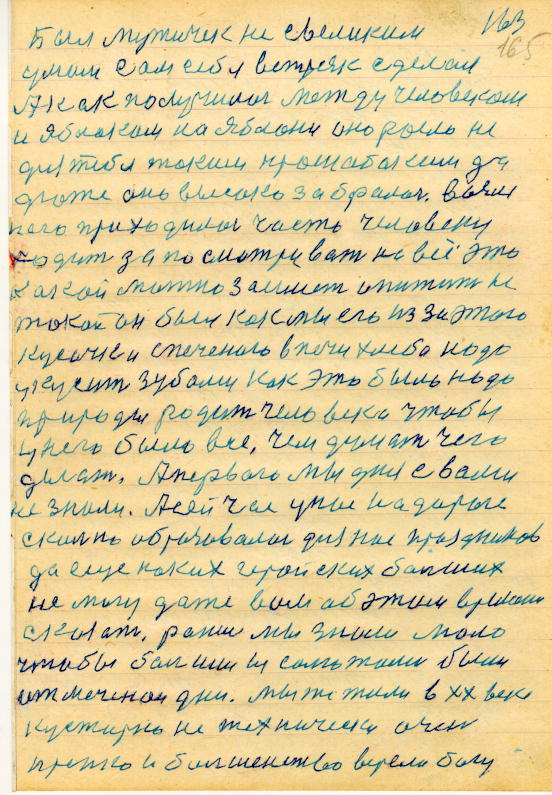 163
165
Был мужичек не свеликим
умом сам себя встряк сделал
А как получилог между человеком
и яблоком на яблони оно росло не
для тебя таким прошабаким да
тоже оно высоко забралог. возли
него приходилог часть человеку
ходит за посматриват на всё это
какой можно замет опитит не
такой он был как мы его из за этого
кусочка спеченого впечи хлеба надо
укусит зубами как это было надо
природы родит человека чтобы
у него было все, чем думат чего
делат. Апервого мы дня с вами
не знали. Асей час унас на дароге
сколко образовалог для нас праздников
да еще каких геройских балших
не могу даже вам об этом времени
сказат. ранше мы знали мало
чтобы балшими самотами были
отмеченаи дни. мы же жили в XX веке
кустарно не технически очен
крепко и балшенство верели богу